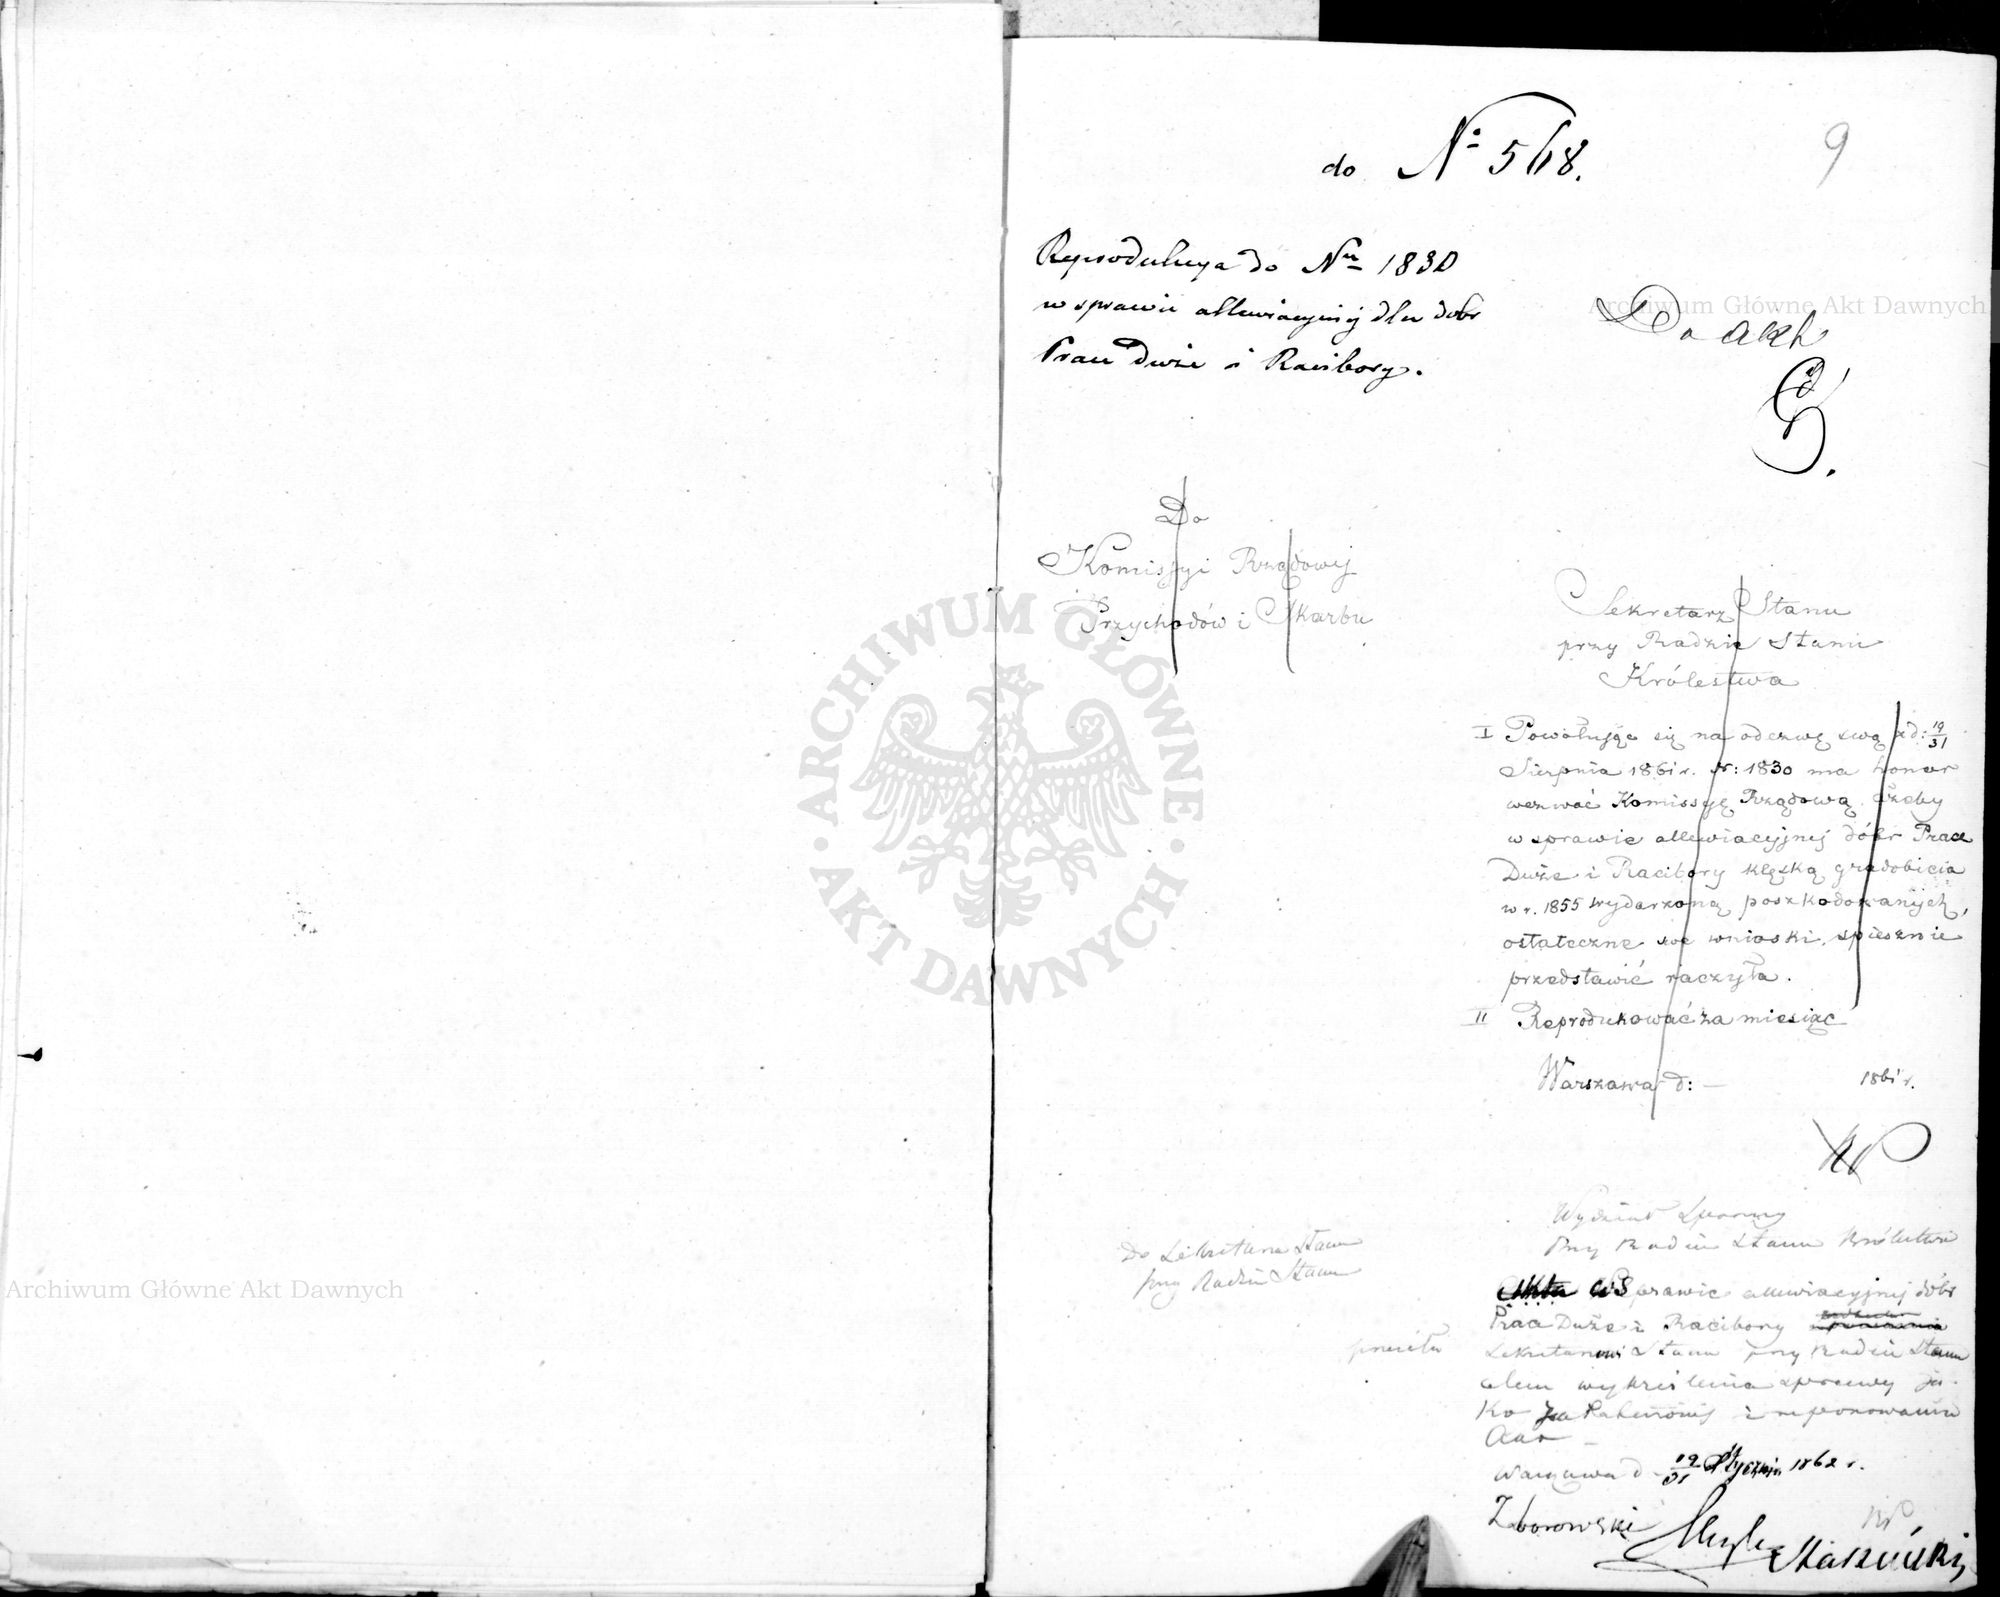 do Nº 568.
9
Reprodukcya do Nru 1830
w sprawie allewiacyjnej dla dobr
Prace Duże i Racibory.
Do akt
Do
Komissyi Rządowej
Przychodów i Skarbu
Sekretarz Stanu
przy Radzie Stanu
Królestwa
I Powołując się na odezwę swą z d: 19/31
Sierpnia 1861 r. Nr: 1830 ma honor
wezwać Komissyę Rządową, ażeby
w sprawie allewiacyjnej dóbr Prace
Duże i Racibory klęską gradobicia
w r. 1855 wydarzoną poszkodowanych,
ostateczne swe wnioski spiesznie
przedstawić raczyła.
II Reprodukować za miesiąc
Warszawa d: — 1861 r.
Wydział Sporny
Przy Radzie Stanu Królestwa
Do Sekretarza Stanu
przy Radzie Stanu
Akta w Sprawie allewiacyjnej dóbr
Prace Duże i Racibory
przesyła
Sekretarzowi Stanu przy Radzie Stanu
celem wykreślenia sprawy ja-
ko załatwionej i reponowania
Akt —
Warszawa d. 19/31 Stycznia 1862 r.
Zborowski
Archiwum Główne Akt Dawnych
Archiwum Główne Akt Dawnych
ARCHIWUM GŁÓWNE
AKT DAWNYCH